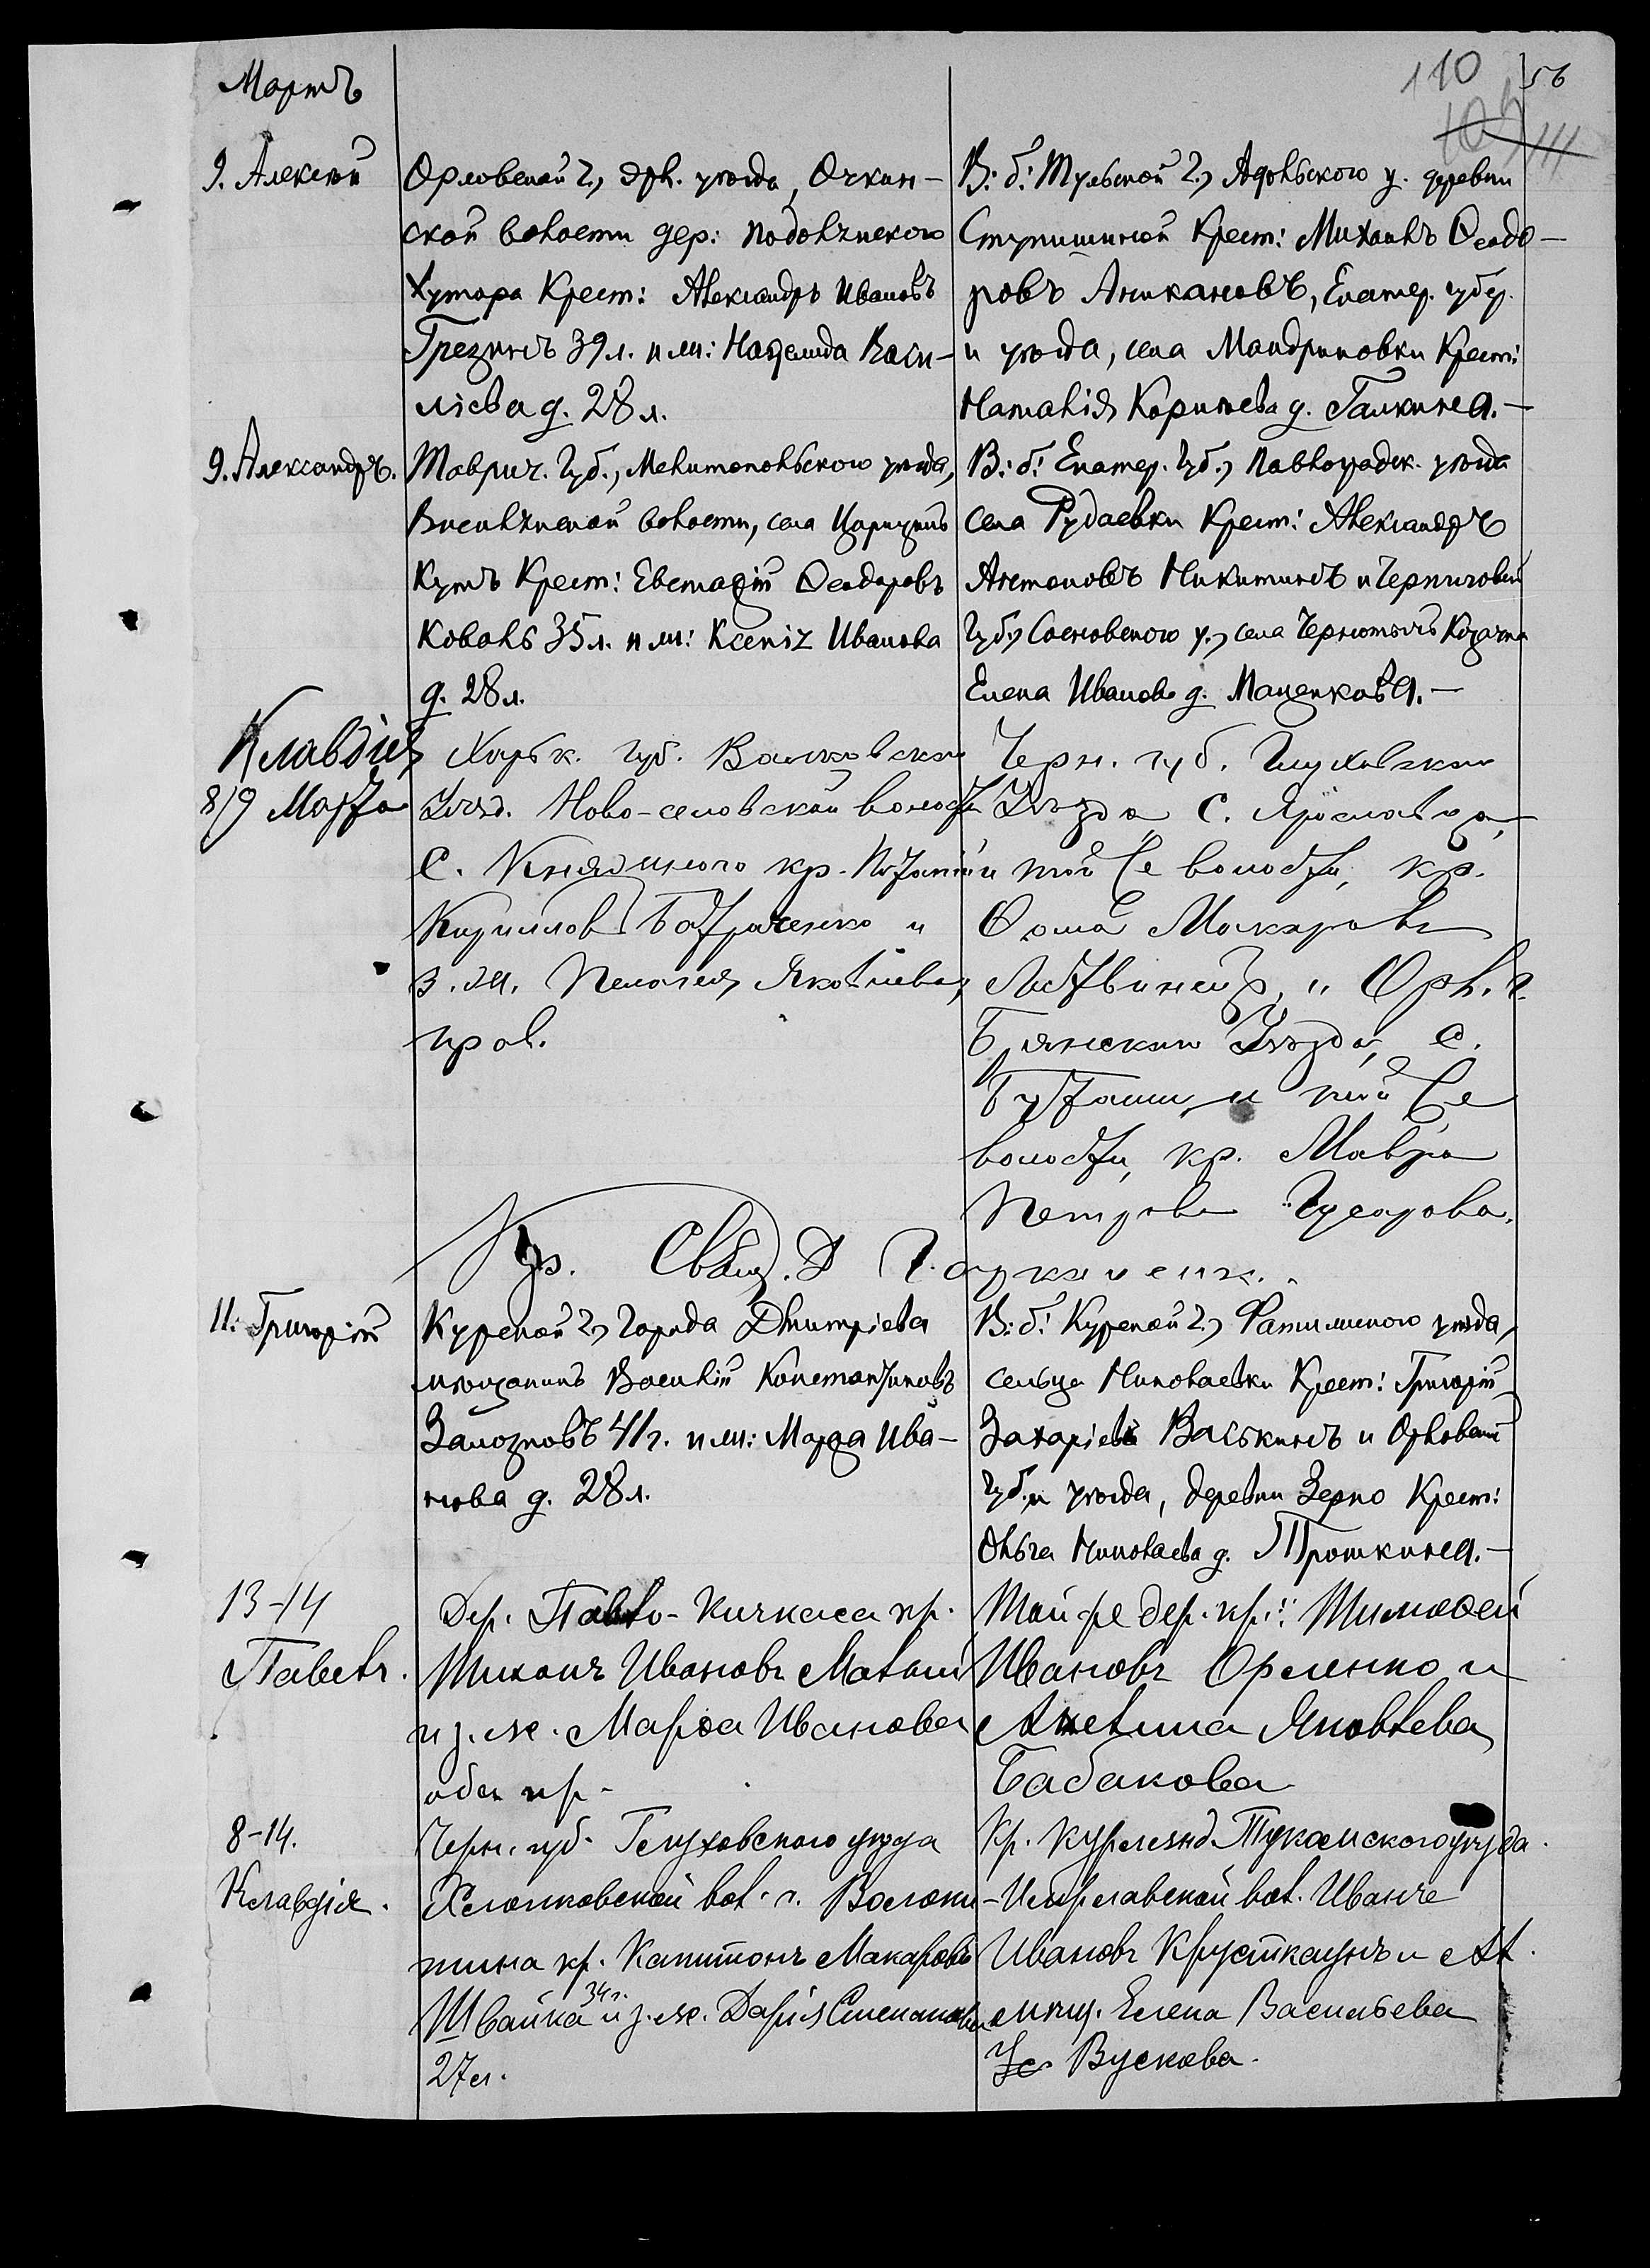 110 56
Мартъ
111
9. Алексѣй
Орловской г., Орл. уѣзда, Очкин-
ской волости дер: Подолжскаго
Хутора Крест: Александръ Ивановъ
Грезинъ 39 л. и жн: Надежда Васи-
ліева д. 28 л.
В: б: Тульской г., деревни
Ступишиной Крест: Михаилъ Ѳеодо-
ровъ Аникановъ, Екатер. губер.
и уѣзда, села Мандриковки Крест:
Наталія Карпьева д. Галкина.—
9. Александръ.
Таврич. Губ., Мелитопольскаго уѣзда,
волости, села Царицынъ
Кутъ Крест: Евстафій Ѳеодоровъ
Коваль 35 л. и жн: Ксенія Иванова
д. 28 л.
В: б: Екатер. Губ., Павлоградск. уѣзда
села Рудаевки Крест: Александръ
Антоновъ Никитинъ и Черниговск
Губ., Сосновскаго у., села Козачка
Елена Иванова д. Маценкова.—
Клавдія
8/9 Марта
Харьк. губ. Валковскаго
Уѣзд. Ново-селовской волости
С. Княжнаго кр. Потапій
Кирилловъ Батраченко и
з. ж. Пелагея Яковлева,
прав.
Черн. губ. Глуховскаго
Уѣзда, С. Ярославца,
и той же волости, кр.
Ѳома Макаровъ
Литвинецъ, и Орл. г.
Брянскаго Уѣзда, С.
и той же
волости, кр. Мавра
Петрова Гусарова.
Кр. Свящ. Д.
11. Григорій
Курской г., Города Дмитріева
мѣщанинъ Василій Константиновъ
Залозновъ 41 г. и жн: Марѳа Ива-
нова д. 28 л.
В: б: Курской г., Фатежскаго уѣзда,
сельца Николаевки Крест: Григорій
Захаріевъ Васькинъ и Орловской
Губ. и уѣзда, деревни Зерно Крест:
Ольга Николаева д. Трошкина.—
13-14
Павелъ.
Дер. Павло-Кичкаса кр.
Тихонъ Ивановъ Малый
и з. ж. Марѳа Иванова
оба пр.
Той же дер. кр.: Тимоѳей
Ивановъ Орленко и
Акелина Яковлева
Бабакова
8-14.
Клавдія.
Черн. губ. Глуховскаго уѣзда
Хлопковской вол. с. Волоки-
тина кр. Капитонъ Макаровъ
34 г.
Швайка и з. ж. Дарія Степанова
27 л.
Кр. Курлянд. Тукомскаго уѣзда
вол. Иванъ
Ивановъ Крусткалнъ и Ал.
мѣщ. Елена Васильева
Вускова.